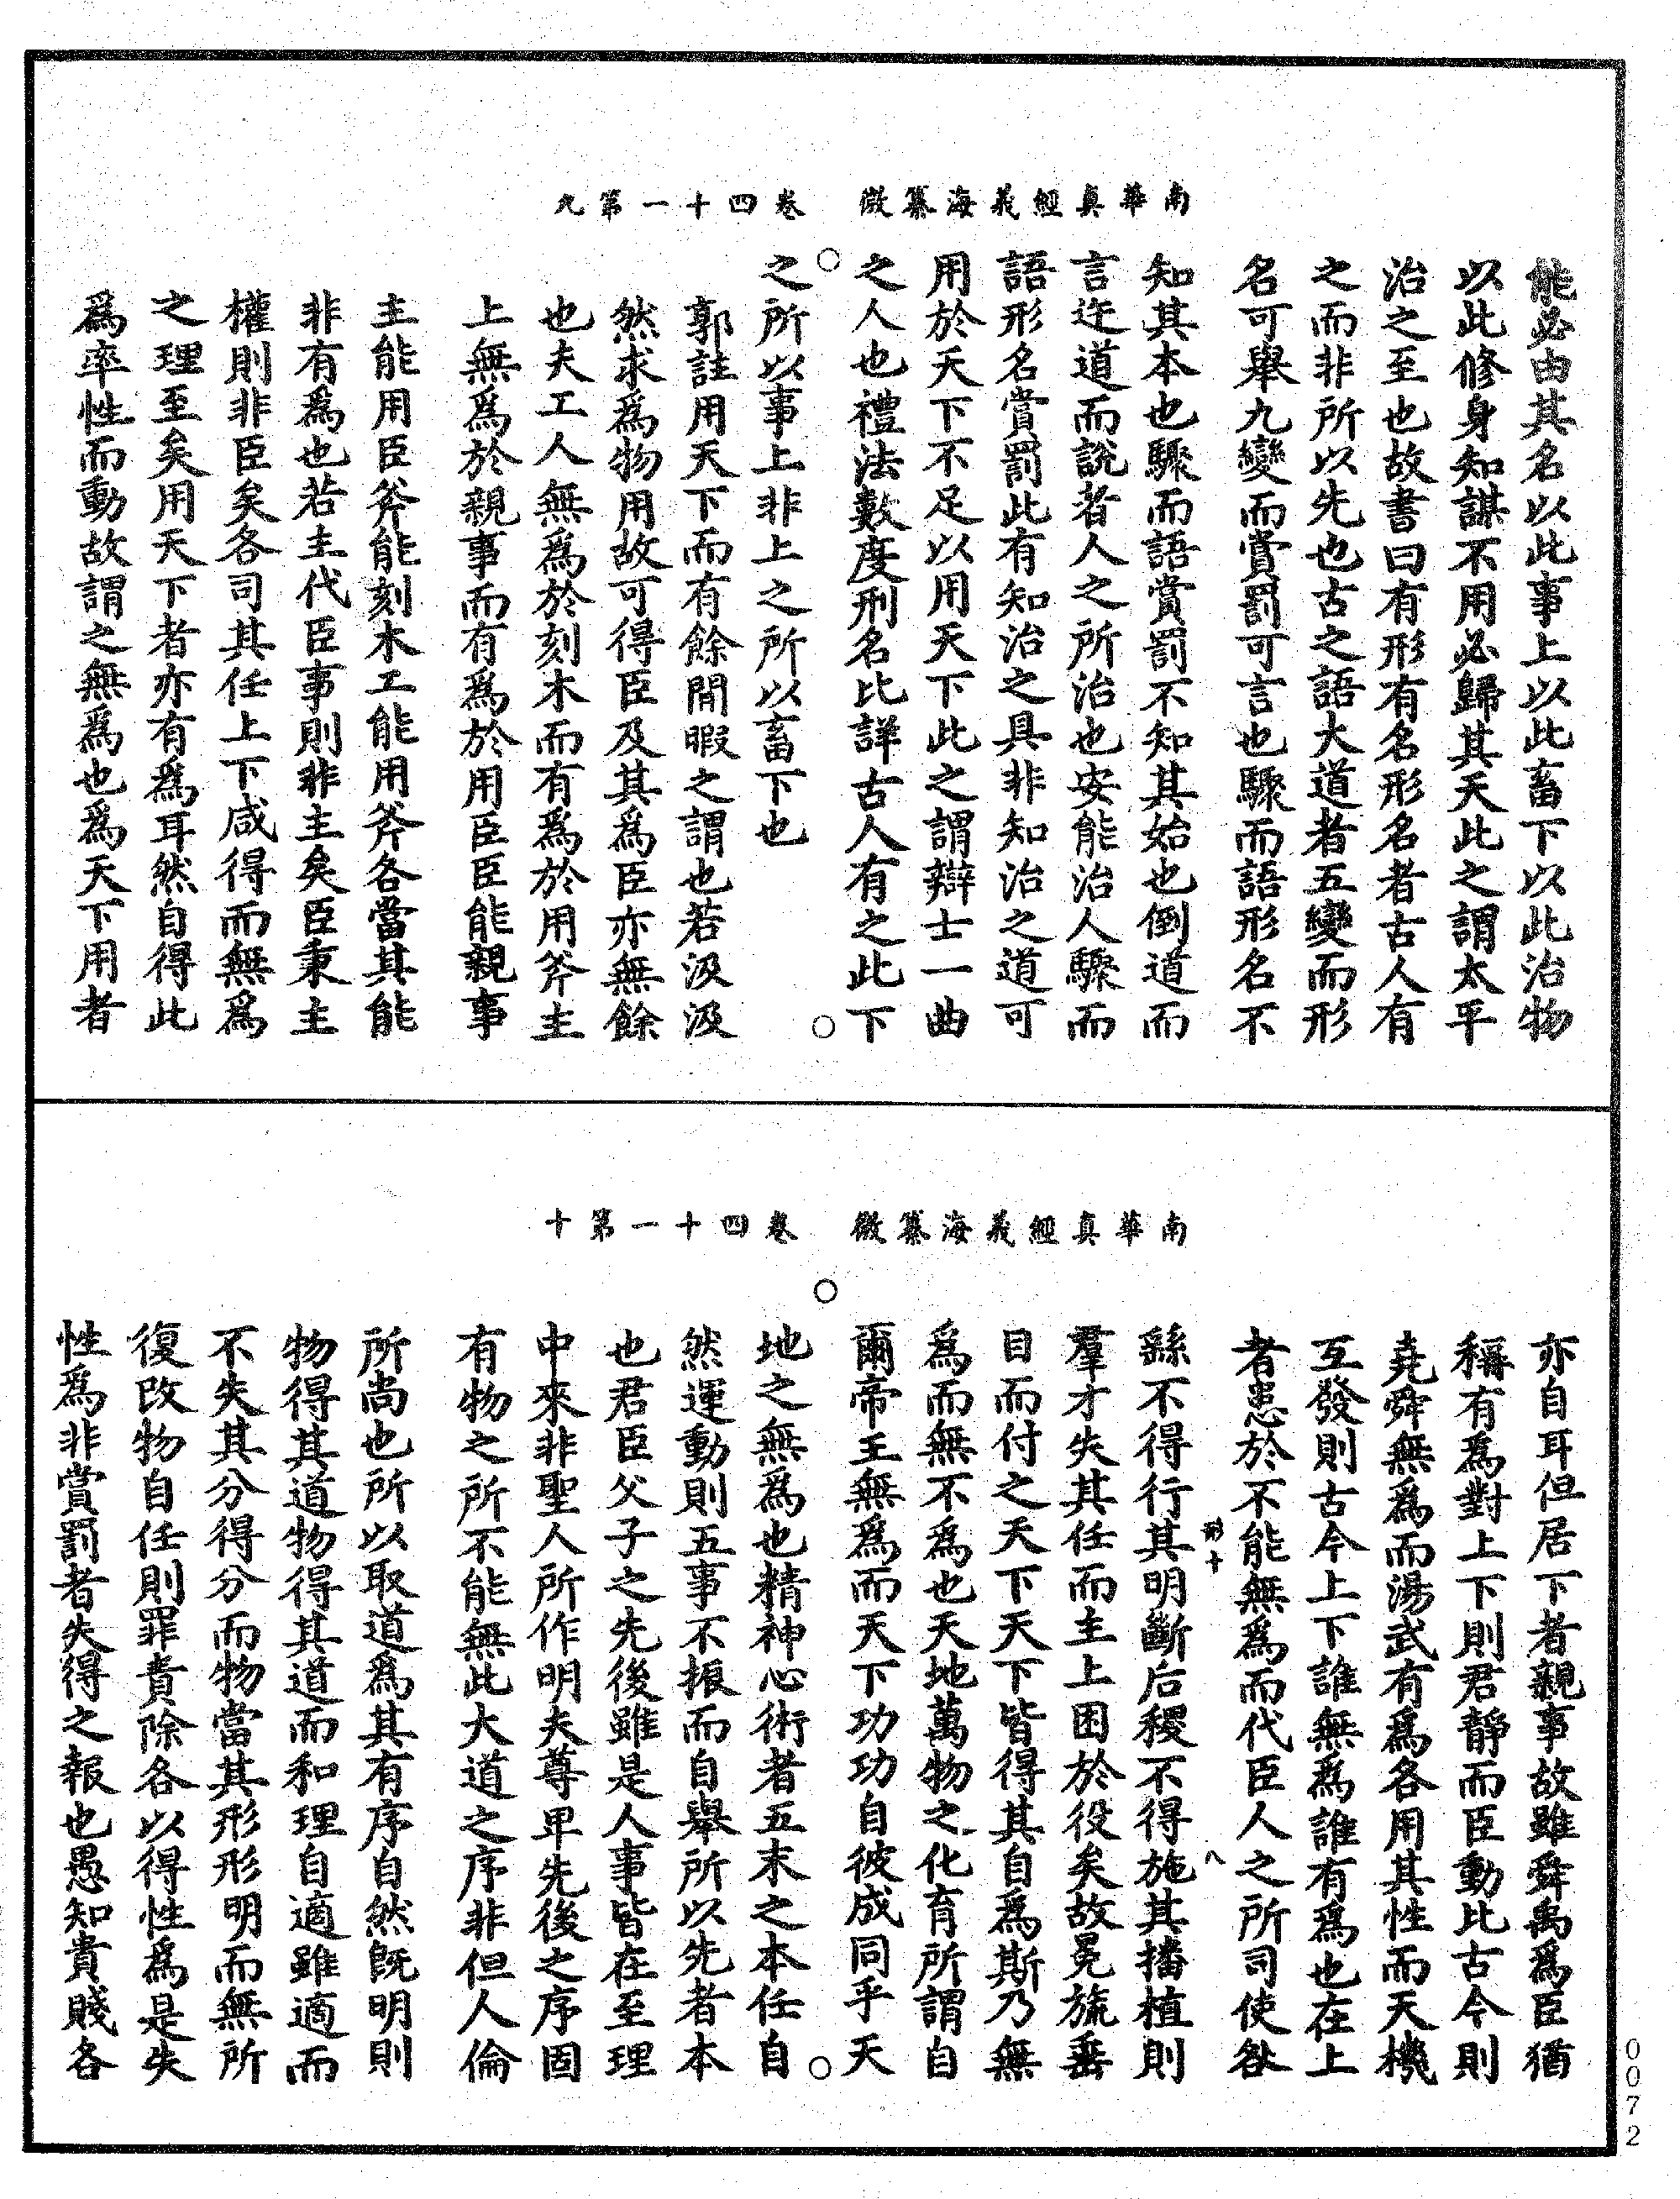 南華真經義海纂微　卷四十一第九
能必由其名以此事上以此畜下以此治物
以此修身知謀不用必歸其天此之謂太平
治之至也故書曰有形有名形名者古人有
之而非所以先也古之語大道者五變而形
名可舉九變而賞罰可言也驟而語形名不
知其本也驟而語賞罰不知其始也倒道而
言迕道而說者人之所治也安能治人驟而
語形名賞罰此有知治之具非知治之道可
用於天下不足以用天下此之謂辯士一曲
之人也禮法數度刑名比詳古人有之此下
之所以事上非上之所以畜下也
郭註用天下而有餘閒暇之謂也若汲汲
然求爲物用故可得臣及其爲臣亦無餘
也夫工人無爲於刻木而有爲於用斧主
上無爲於親事而有爲於用臣臣能親事
主能用臣斧能刻木工能用斧各當其能
非有爲也若主代臣事則非主矣臣秉主
權則非臣矣各司其任上下咸得而無爲
之理至矣用天下者亦有爲耳然自得此
爲率性而動故謂之無爲也爲天下用者
南華真經義海纂微　卷四十一第十
亦自耳但居下者親事故雖舜禹爲臣猶
稱有爲對上下則君靜而臣動比古今則
堯舜無爲而湯武有爲各用其性而天機
互發則古今上下誰無爲誰有爲也在上
者患於不能無爲而代臣人之所司使咎
繇不得行其明斷后稷不得施其播植則
羣才失其任而主上困於役矣故冕旒垂
目而付之天下天下皆得其自爲斯乃無
爲而無不爲也天地萬物之化育所謂自
爾帝王無爲而天下功功自彼成同乎天
地之無爲也精神心術者五末之本任自
然運動則五事不振而自舉所以先者本
也君臣父子之先後雖是人事皆在至理
中來非聖人所作明夫尊卑先後之序固
有物之所不能無此大道之序非但人倫
所尚也所以取道爲其有序自然既明則
物得其道物得其道而和理自適雖適而
不失其分得分而物當其形形明而無所
復改物自任則罪責除各以得性爲是失
性爲非賞罰者失得之報也愚知貴賤各
十
八
0072